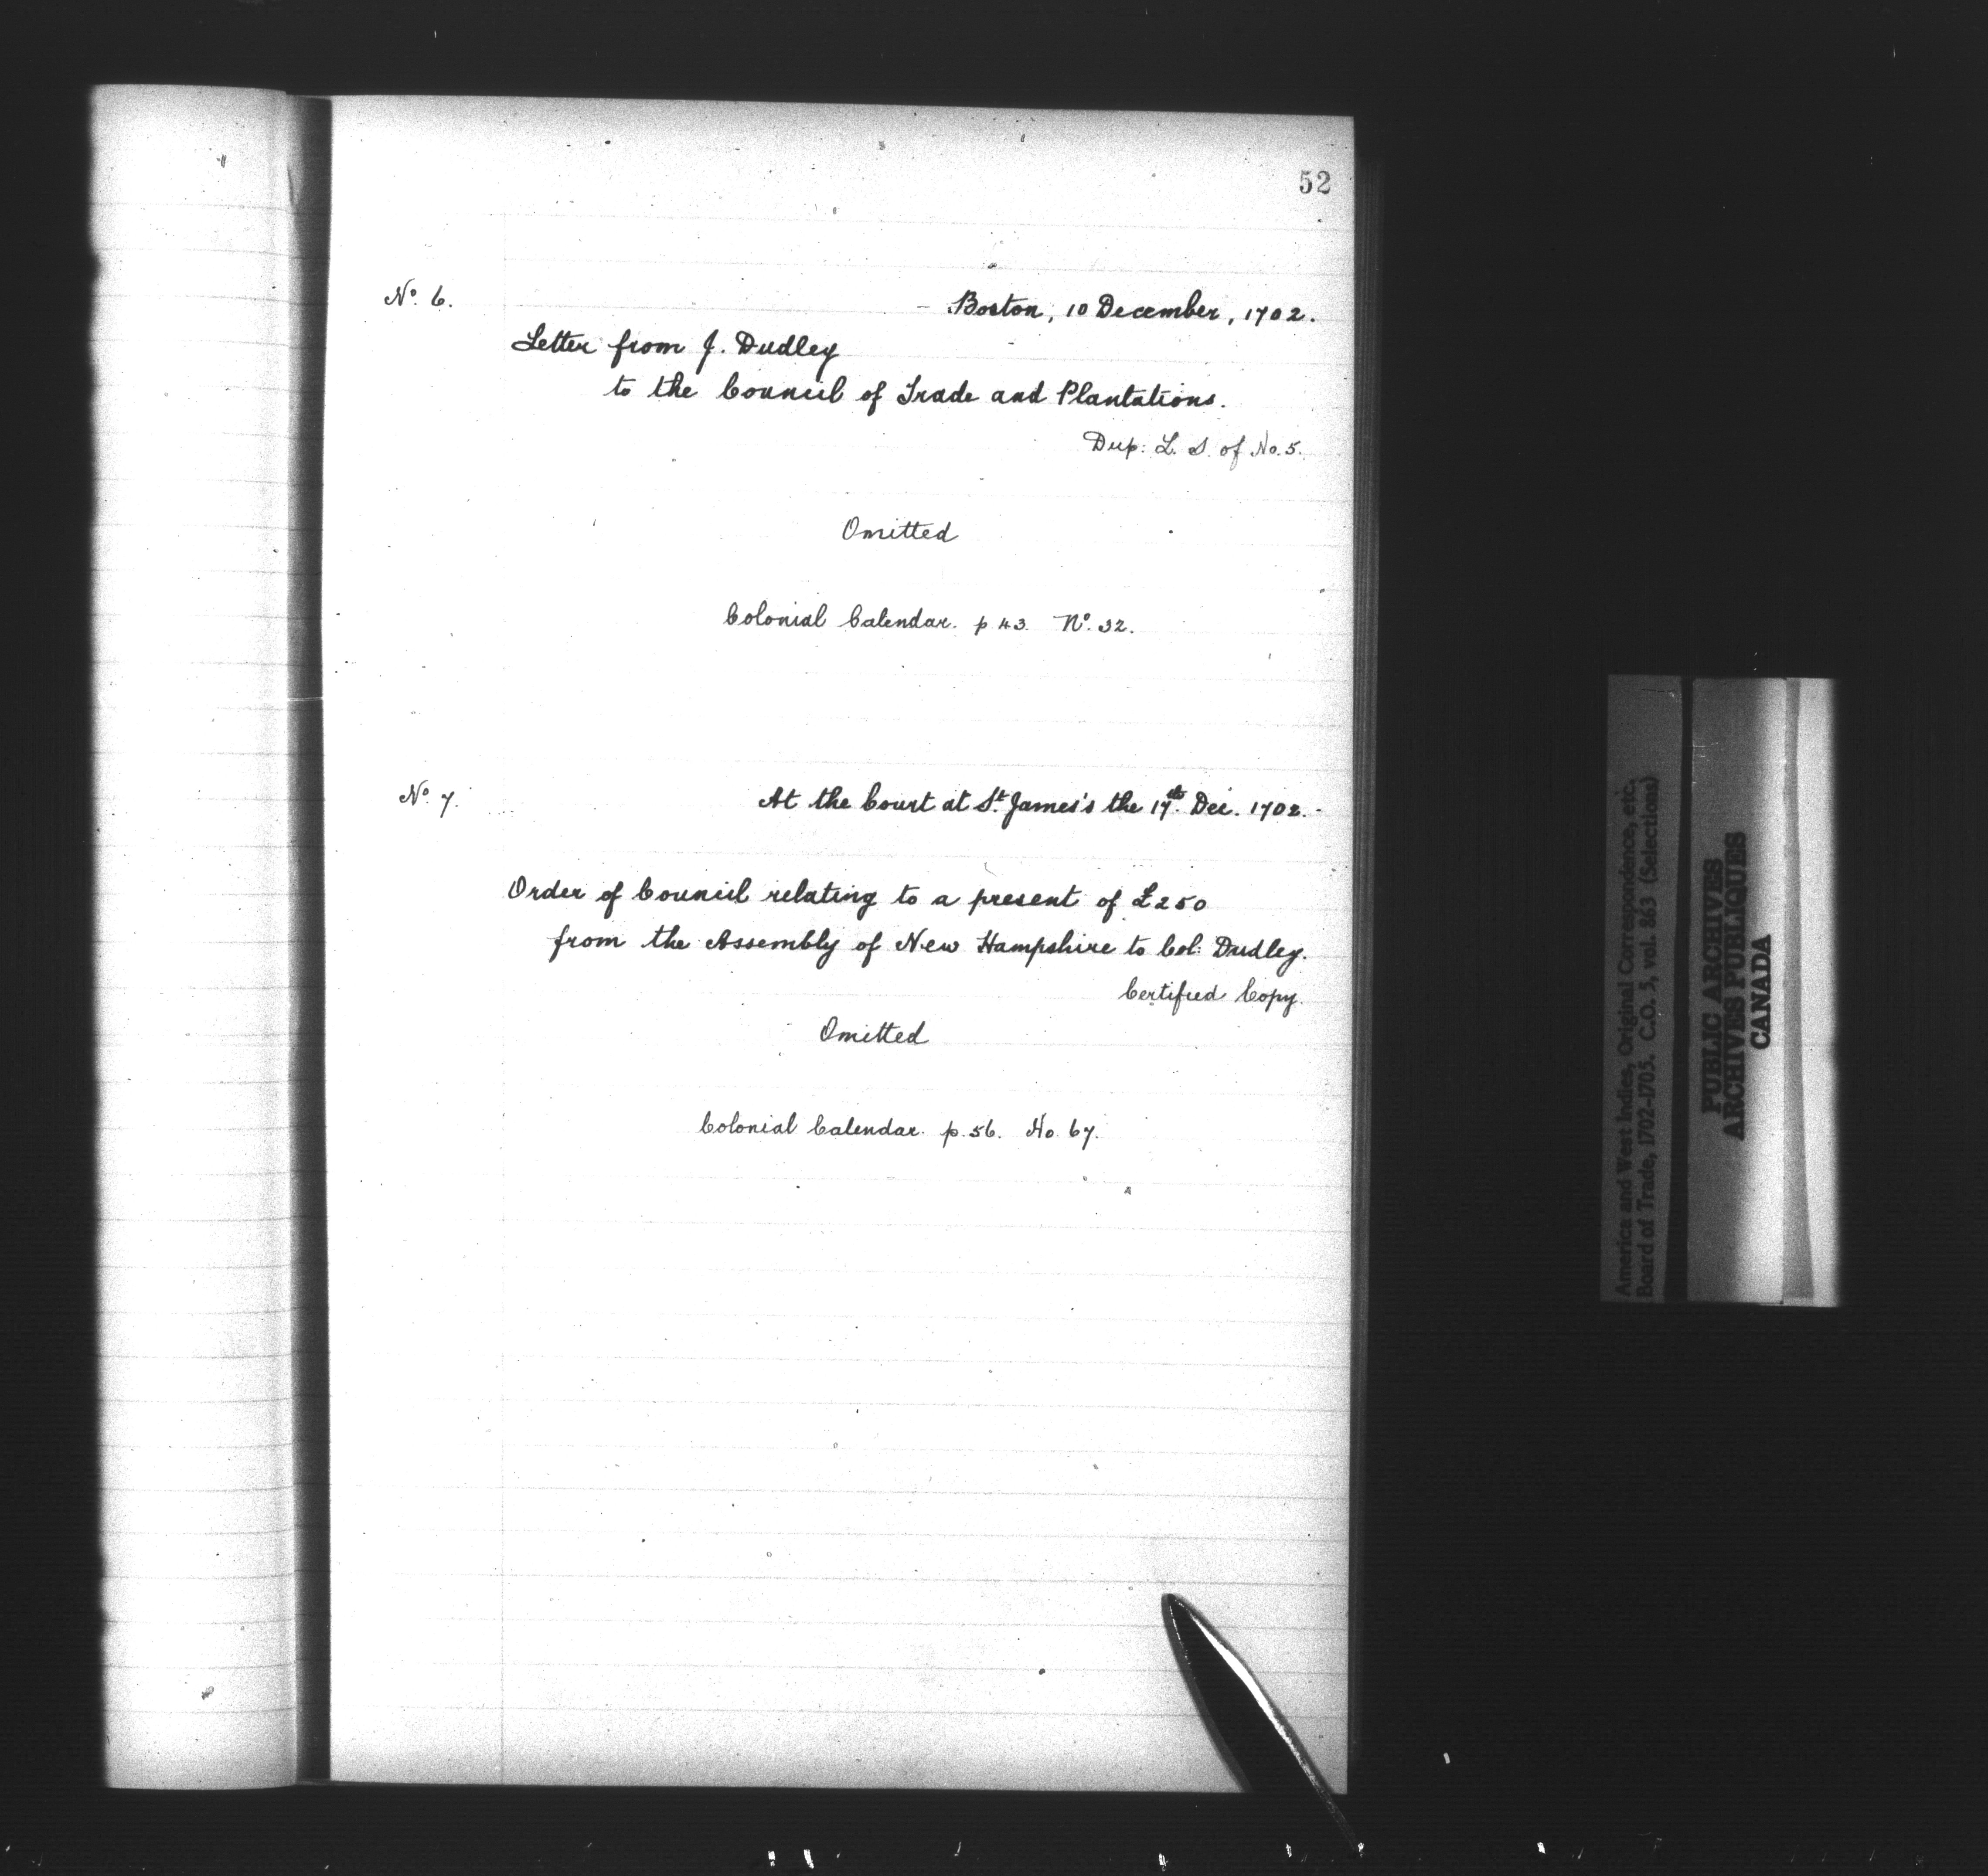 52
No. 6.
Boston, 10 December, 1702.
Letter from J. Dudley
to the Council of Trade and Plantations.
Dup: L. S. of No. 5.
Omitted
Colonial Calendar. p 43. No. 32.
No. 7.
At the Court at St. James's the 17th. Dec. 1702.
Order of Council relating to a present of £250
from the Assembly of New Hampshire to Col: Dudley.
Certified Copy.
Omitted
Colonial Calendar. p. 56. No. 67.
America and West Indies, Original Correspondence, etc.
Board of Trade, 1702-1705. C.O. 5, vol. 863 (Selections)
PUBLIC ARCHIVES
ARCHIVES PUBLIQUES
CANADA